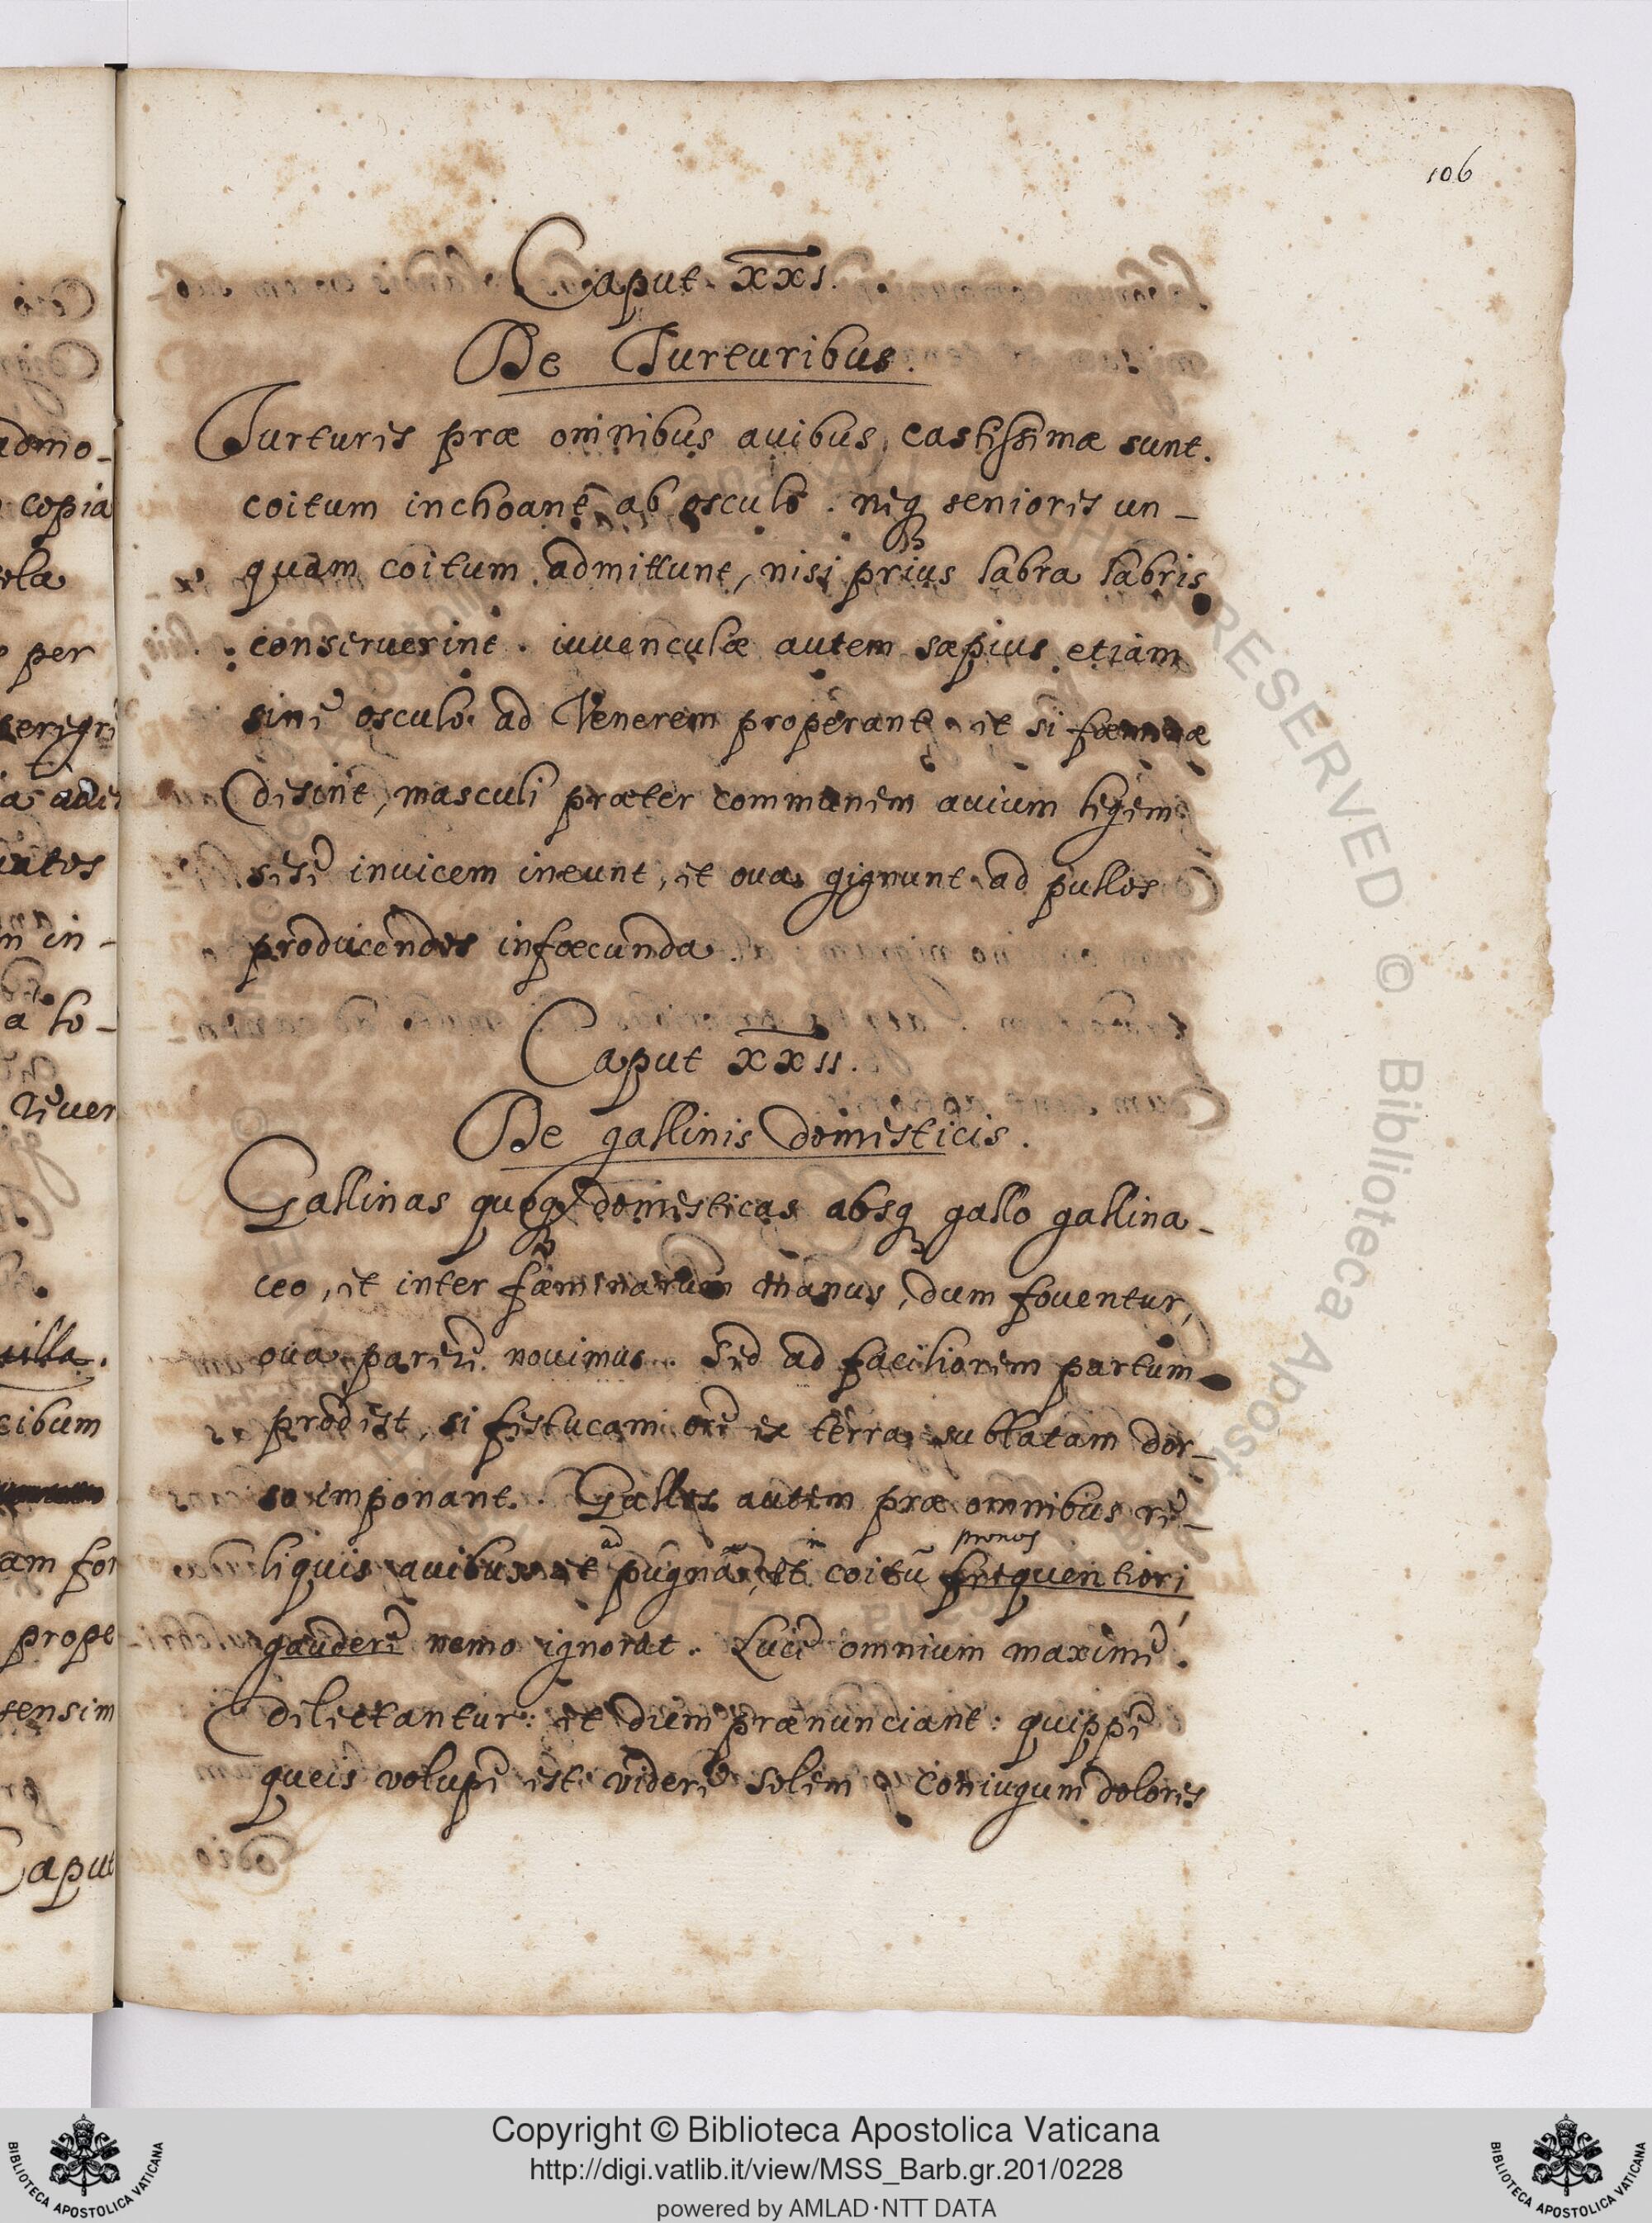 106
Caput XXI.
De Turturibus.
Turtures præ omnibus auibus castissimæ sunt.
coitum inchoant ab osculo. neq3 seniores un-
quam coitum admittunt, nisi prius labra labris
conseruerint. iuuenculæ autem sæpius etiam
sine osculo ad Venerem properant. et si fœminæ
desint, masculi præter communem auium legem
sese inuicem ineunt, et oua gignunt ad pullos
producendos infœcunda.
Caput XXII.
De gallinis domesticis.
Gallinas quoq3 domesticas absq3 gallo gallina-
ceo, et inter fæminarum manus, dum fouentur,
oua parere nouimus. Sed ad faciliorem partum
prodest, si festucam ore ex terra sublatam dor-
so imponant. Gallos autem præ omnibus re-
ad in pronos
liquis auibus et pugnã, et coitũ frequentiori
gaudere nemo ignorat. Luce omnium maxime
delectantur: et diem prænunciant: quippe
queis volupe est videre solem coniugum dolores
admo-
copia
per
in-
a lo-
cibum
prope
sensim
Caput
Copyright © Biblioteca Apostolica Vaticana
http://digi.vatlib.it/view/MSS_Barb.gr.201/0228
powered by AMLAD·NTT DATA
BIBLIOTECA APOSTOLICA VATICANA
BIBLIOTECA APOSTOLICA VATICANA